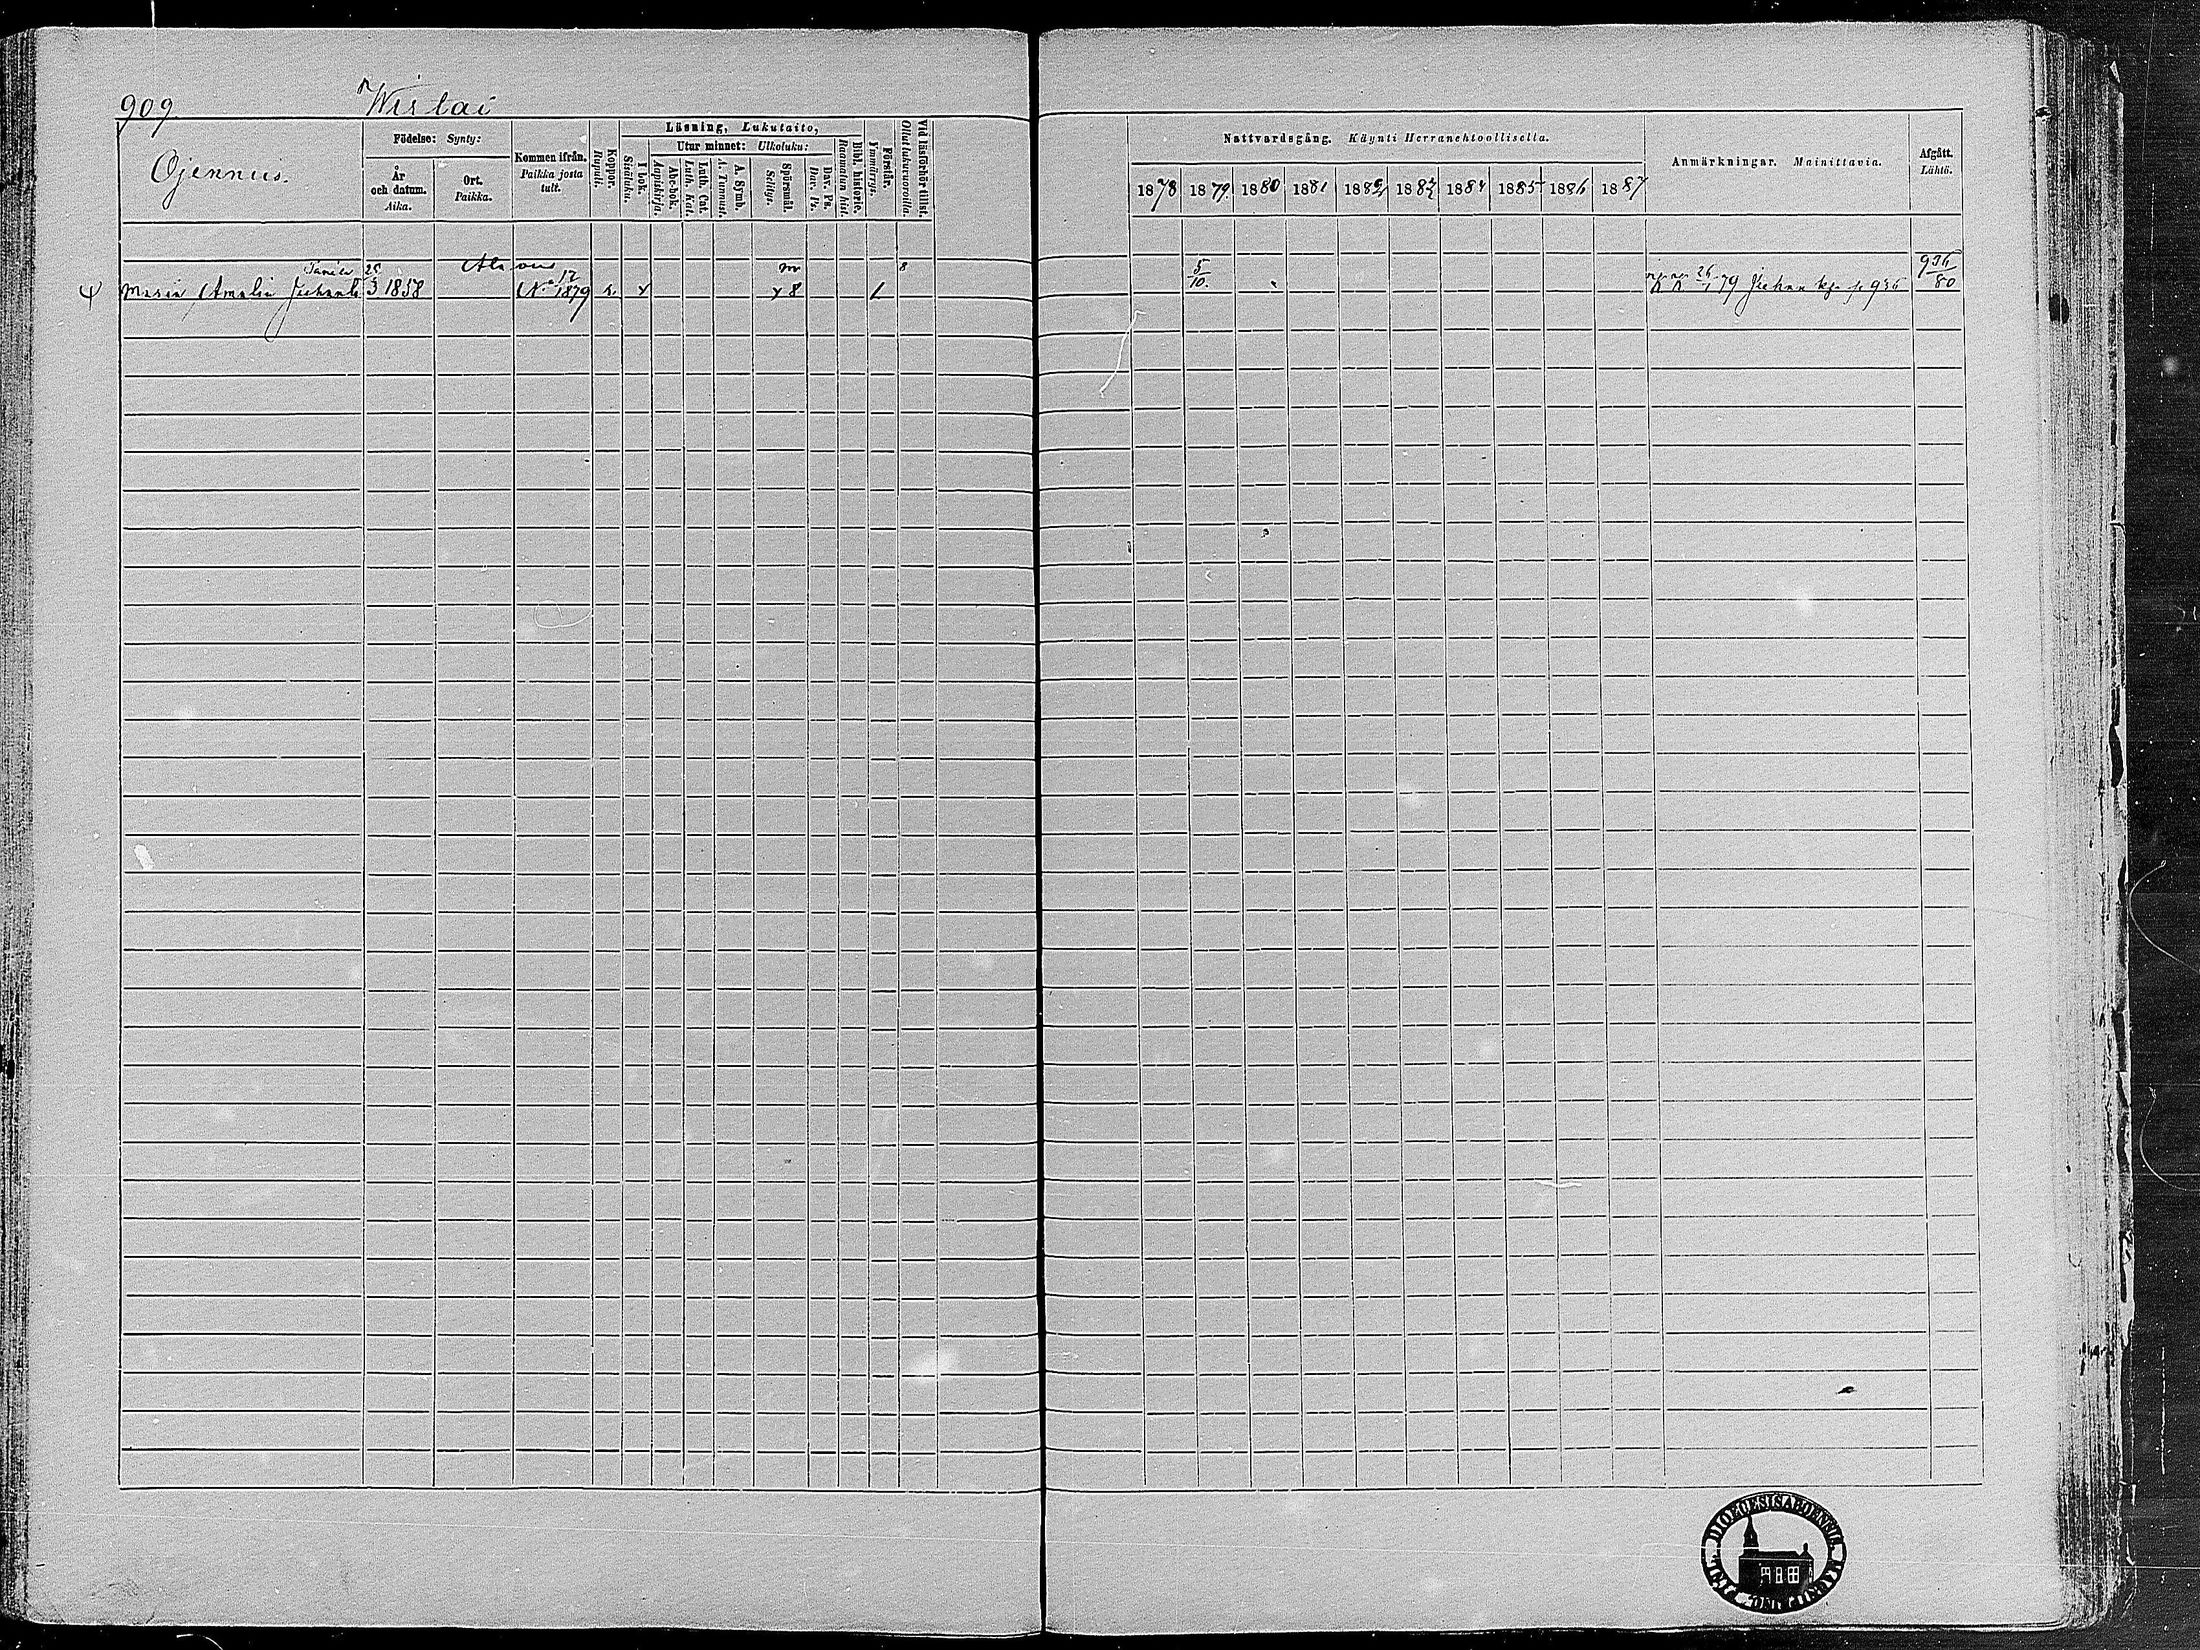 909. Wirlai
Öjennus.
Födelse: Synty:
År och datum. Aika.
Ort. Paikka.
Kommen ifrån. Paikka josta tult.
Koppor. Rupuli.
Läsning, Lukutaito,
I bok. Sisäluku.
Utur minnet: Ulkoluku:
Abc-bok. Aapiskirja.
Luth. Cat. Luth. Kat.
A. Symb. A. Tunnust.
Spörsmål. Selitys.
Dav. Ps. Dav. Ps.
Bibl. historie. Raamatun hist.
Förstår. Ymmärrys.
Vid läsförhör tillst. Ollut lukuvuoroilla.
Nattvardsgång. Käynti Herranehtoollisella.
1878 1879. 1880 1881 1882 1883 1884 1885 1886 1887
Anmärkningar. Mainittavia.
Afgått. Lähtö.
Maria Amalia Juhant. 25/3 1858 Alavus N:o 12/1879 r. x x 8 5/10. 26/1 79 Juhan kg. p 936 936/80